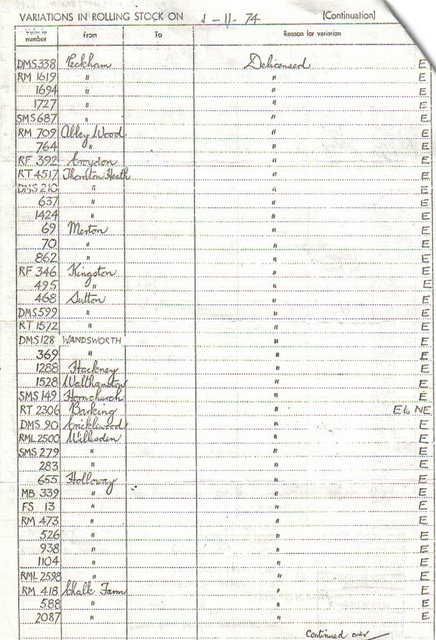 VARIATIONS IN ROLLING STOCK ON 1-11-74 (Continuation)
number From To Reason for variation
DMS 338 Peckham Delicensed E
RM 1619 " " E
1694 " " E
1727 " " E
SMS 687 " " E
RM 709 Abbey Wood " E
764 " " E
RF 392 Croydon " E
RT 4517 Thornton Heath " E
DMS 210 " " E
637 " " E
1424 " " E
69 Merton " E
70 " " E
862 " " E
RF 346 Kingston " E
495 " " E
468 Sutton " E
DMS 599 " " E
RT 1572 " " E
DMS 128 WANDSWORTH " E
369 " " E
1288 Hackney " E
1528 Walthamstow " E
SMS 149 Hornchurch " E
RT 2306 Barking " E6 NE
DMS 90 Cricklewood " E
RML 2500 Willesden " E
SMS 279 " " E
283 " " E
655 Holloway " E
MB 339 " " E
FS 13 " " E
RM 473 " " E
526 " " E
938 " " E
1104 " " E
RML 2598 " " E
RM 418 Chalk Farm " E
588 " " E
2087 " " E
Continued over